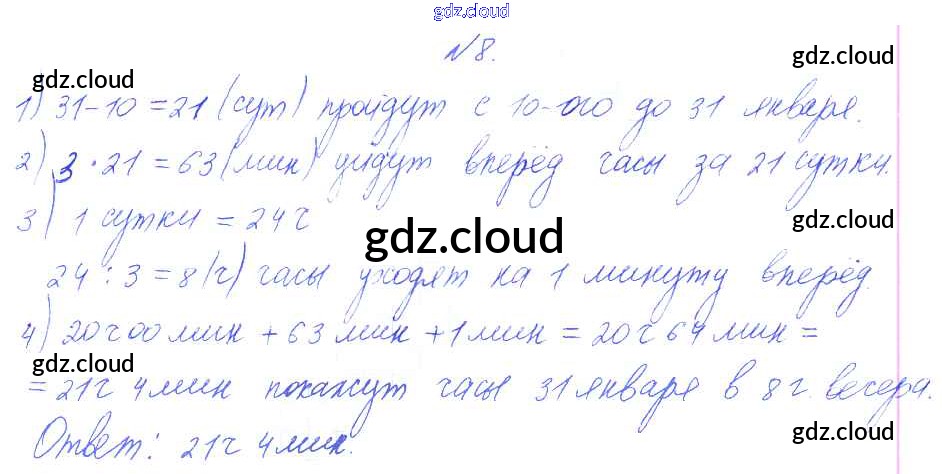 gdz.cloud
№8.
gdz.cloud gdz.cloud
1) 31-10 = 21 (сут) пройдут с 10-ого до 31 января.
2) 3 · 21 = 63 (мин) уйдут вперёд часы за 21 сутки.
gdz.cloud
3) 1 сутки = 24 ч
gdz.cloud
24 : 3 = 8 (ч) часы уходят на 1 минуту вперёд.
4) 20 ч 00 мин + 63 мин + 1 мин = 20 ч 64 мин =
gdz.cloud gdz.cloud
= 21 ч 4 мин покажут часы 31 января в 8 ч. вечера.
gdz.cloud
Ответ: 21 ч 4 мин.
gdz.cloud